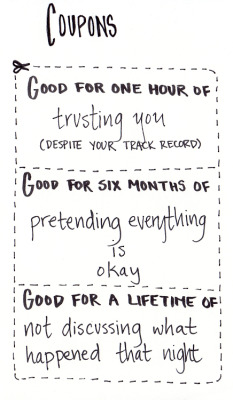 Coupons
Good for one hour of
trusting you
(despite your track record)
Good for six months of
pretending everything
is
okay
Good for a lifetime of
not discussing what
happened that night